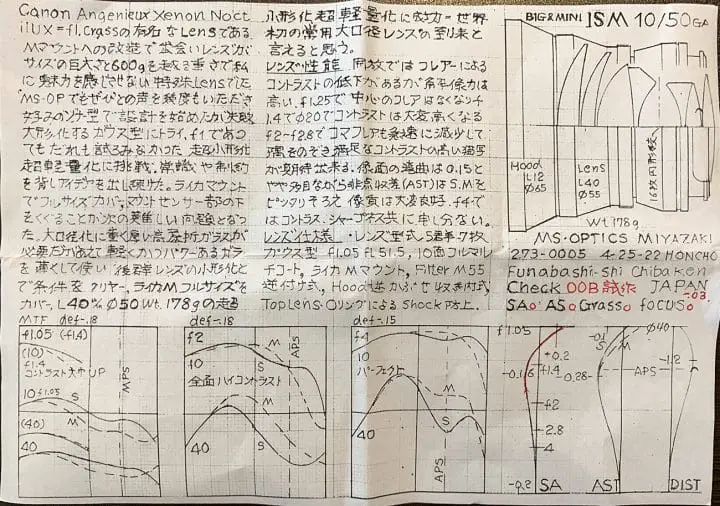 Canon Angenieux Xenon Noct
ilUX=f1.Crassの有名なLensである
Mマウントへの改造で出会いレンズが
サイズの巨大さと600gを越る重さで私
に魅力を感じさせない特殊レンズでした
MS-OPでもぜひとの声を幾度もいただき
ゾナー型で設計を始めたが失敗
大形化するガウス型にトライ、f1であっ
てもだれも試ろみなかった 超小形化
超軽量化に挑戦。常識や制約
を背しアイデアを出し続けた。ライカマウント
でフルサイズカバー,マウントセンサー部の下
をくぐることが次の難しい問題となっ
た。大口径化に重く厚い高屈折ガラスが
必要だがあえて軽くかつパワーあるガラ
を薄くして使い 後群レンズの小形化と
で条件をクリヤー。ライカMフルサイズを
カバー, L40% Ø50 Wt. 178gの超
小形化超軽量化に成功＝世界
初の常用大口径レンズの到来と
言えると思う。
レンズ性能 開放ではコレアーによる
コントラストの低下があるが解像力は
高い, f1.25で中心のコレアはなくなりf
1.4でØ20でコントラストは大変高くなる
f2〜f2.8でコマフレアも急速に減少して
隅をのぞき満足なコントラストの高い描写
が期待出来る。像面の湾曲は0.15と
やや残目ながら非点収差(AST)はS.Mを
ピッタリそろえ 像質は大変良好. f4で
はコントラス、シャープネス共に申し分ない。
レンズ仕様 ・レンズ型式, 5群・7枚
ガウス型 f1.05 FL51.5, 10面フルマル
チコート。ライカMマウント, Filter M55
逆付式。Hood逆かぶせ収き内式
TopLens、OリングによるShock防止。
BIG&MINI ISM 10/50 GA
Hood
L12
Ø65
Lens
L40
Ø55
16枚円形絞り
Wt.178g
MS-OPTICS MIYAZAKI
273-0005 4-25-22 HONCHO
Funabashi-shi Chibaken
Check 008 試作 JAPAN
-.03
SA○ AS○ Grass○ focus○
MTF def-.18
f1.05 (-f1.4)
(10)
f1.4
コントラスト大巾UP
10 f1.05
S
M
(40)
40
MPS
def-.18
f2
10
M
S
APS
全面ハイコントラスト
M
S
40
def-.15
f4
10
パーフェクト
M
S
40
APS
f1.05
+0.2
-0.16
f1.4
f2
2.8
4
-0.2
SA
Ø40
S
M
-0.28
APS
-1.2
AST
DIST